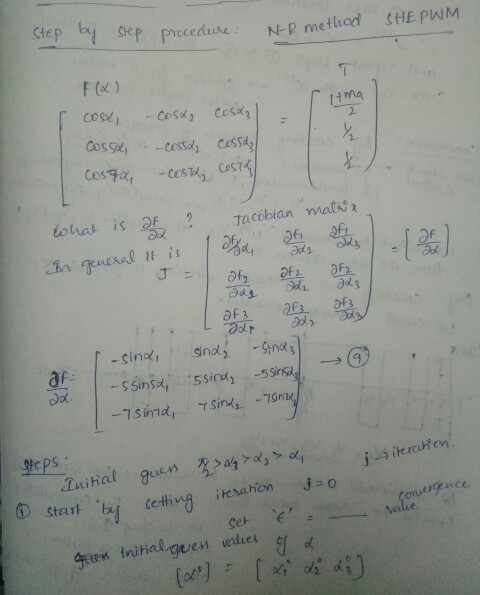 Step by step procedure: N-R method SHEPWM
F(α) T
[ cosα₁ -cosα₂ cosα₃ ] = [ 1+ma/2 ]
[ cos5α₁ -cos5α₂ cos5α₃ ] [ 1/2 ]
[ cos7α₁ -cos7α₂ cos7α₃ ] [ 1/2 ]
What is ∂F/∂α ? Jacobian matrix
In general it is
J = [ ∂f₁/∂α₁ ∂f₁/∂α₂ ∂f₁/∂α₃ ] = [∂F/∂α]
[ ∂f₂/∂α₁ ∂f₂/∂α₂ ∂f₂/∂α₃ ]
[ ∂f₃/∂α₁ ∂f₃/∂α₂ ∂f₃/∂α₃ ]
∂F/∂α = [ -sinα₁ sinα₂ -sinα₃ ] → (9)
[ -5sin5α₁ 5sinα₂ -5sin5α₃ ]
[ -7sin7α₁ 7sinα₂ -7sin7α₃ ]
Steps:
Initial guess π/2 > α₃ > α₂ > α₁ j → iteration.
① Start by setting iteration j=0
set 'ϵ' = ___ convergence value
initial guess values of α
[α°] = [α₁° α₂° α₃°]